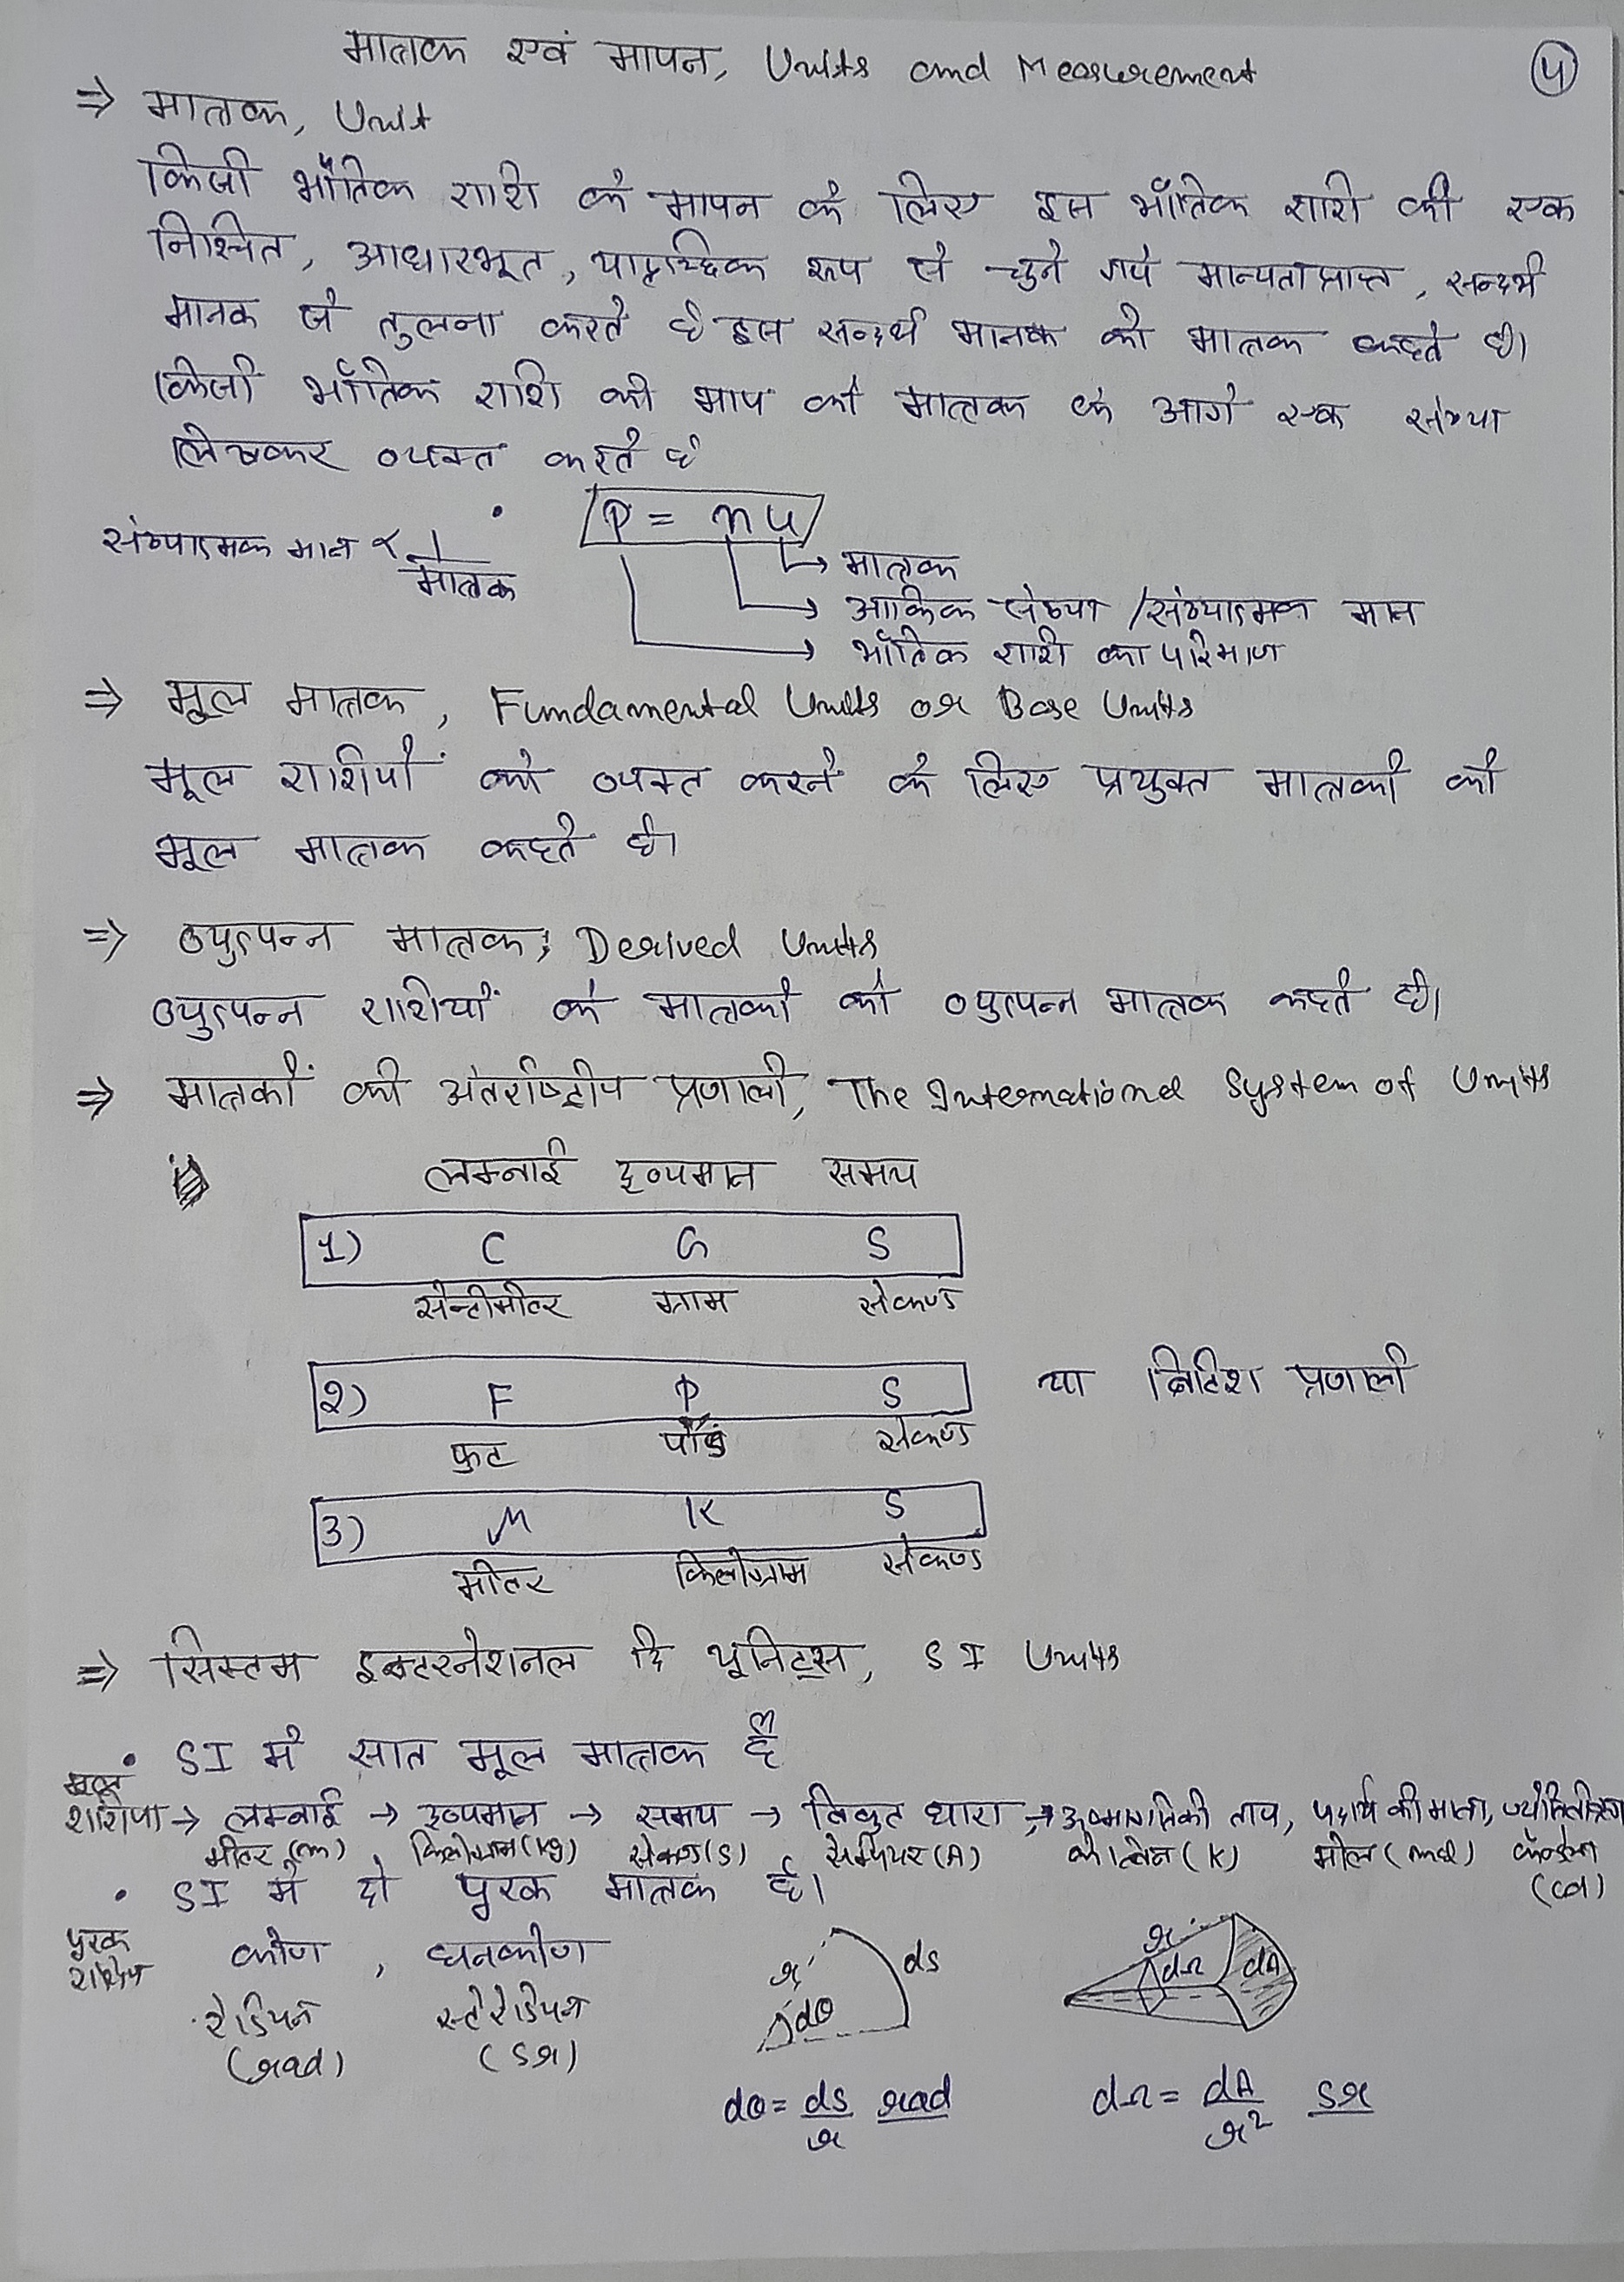 मात्रक एवं मापन, Units and Measurement
4
⇒ मात्रक, Unit
किसी भौतिक राशि के मापन के लिए इस भौतिक राशी की एक
निश्चित, आधारभूत, यादृच्छिक रूप से चुने गये मान्यताप्राप्त, सन्दर्भ
मानक से तुलना करते है इस सन्दर्भ मानक को मात्रक कहते है।
किसी भौतिक राशि की माप को मात्रक के आगे एक संख्या
लिखकर व्यक्त करते है
P = nu
संख्यात्मक मान ∝ 1/मात्रक
→ मात्रक
→ आंकिक संख्या /संख्यात्मक मान
→ भौतिक राशी का परिमाण
⇒ मूल मात्रक, Fundamental Units or Base Units
मूल राशियों को व्यक्त करने के लिए प्रयुक्त मात्रकों को
मूल मात्रक कहते है।
⇒ व्युत्पन्न मात्रक; Derived Units
व्युत्पन्न राशियों के मात्रकों को व्युत्पन्न मात्रक कहते है।
⇒ मात्रकों की अंतर्राष्ट्रीय प्रणाली, The International System of Units
लम्बाई द्रव्यमान समय
1) C G S
सेन्टीमीटर ग्राम सेकण्ड
2) F P S या ब्रिटिश प्रणाली
फुट पौंड सेकण्ड
3) M K S
मीटर किलोग्राम सेकण्ड
⇒ सिस्टम इन्टरनेशनल दि यूनिट्स, SI Units
• SI में सात मूल मात्रक हैं
मूल
राशिया → लम्बाई → द्रव्यमान → समय → विद्युत धारा, → ऊष्मागतिकी ताप, पदार्थ की मात्रा,
मीटर (m) किलोग्राम (kg) सेकण्ड (s) ऐम्पियर (A) केल्विन (K) मोल (mol) कैन्डेला
(cd)
• SI में दो पूरक मात्रक है।
पूरक कोण, घनकोण
रेडियन स्टेरेडियन
(rad) (sr)
r ds dθ
r dΩ dA
dθ = ds/r rad
dΩ = dA/r² sr